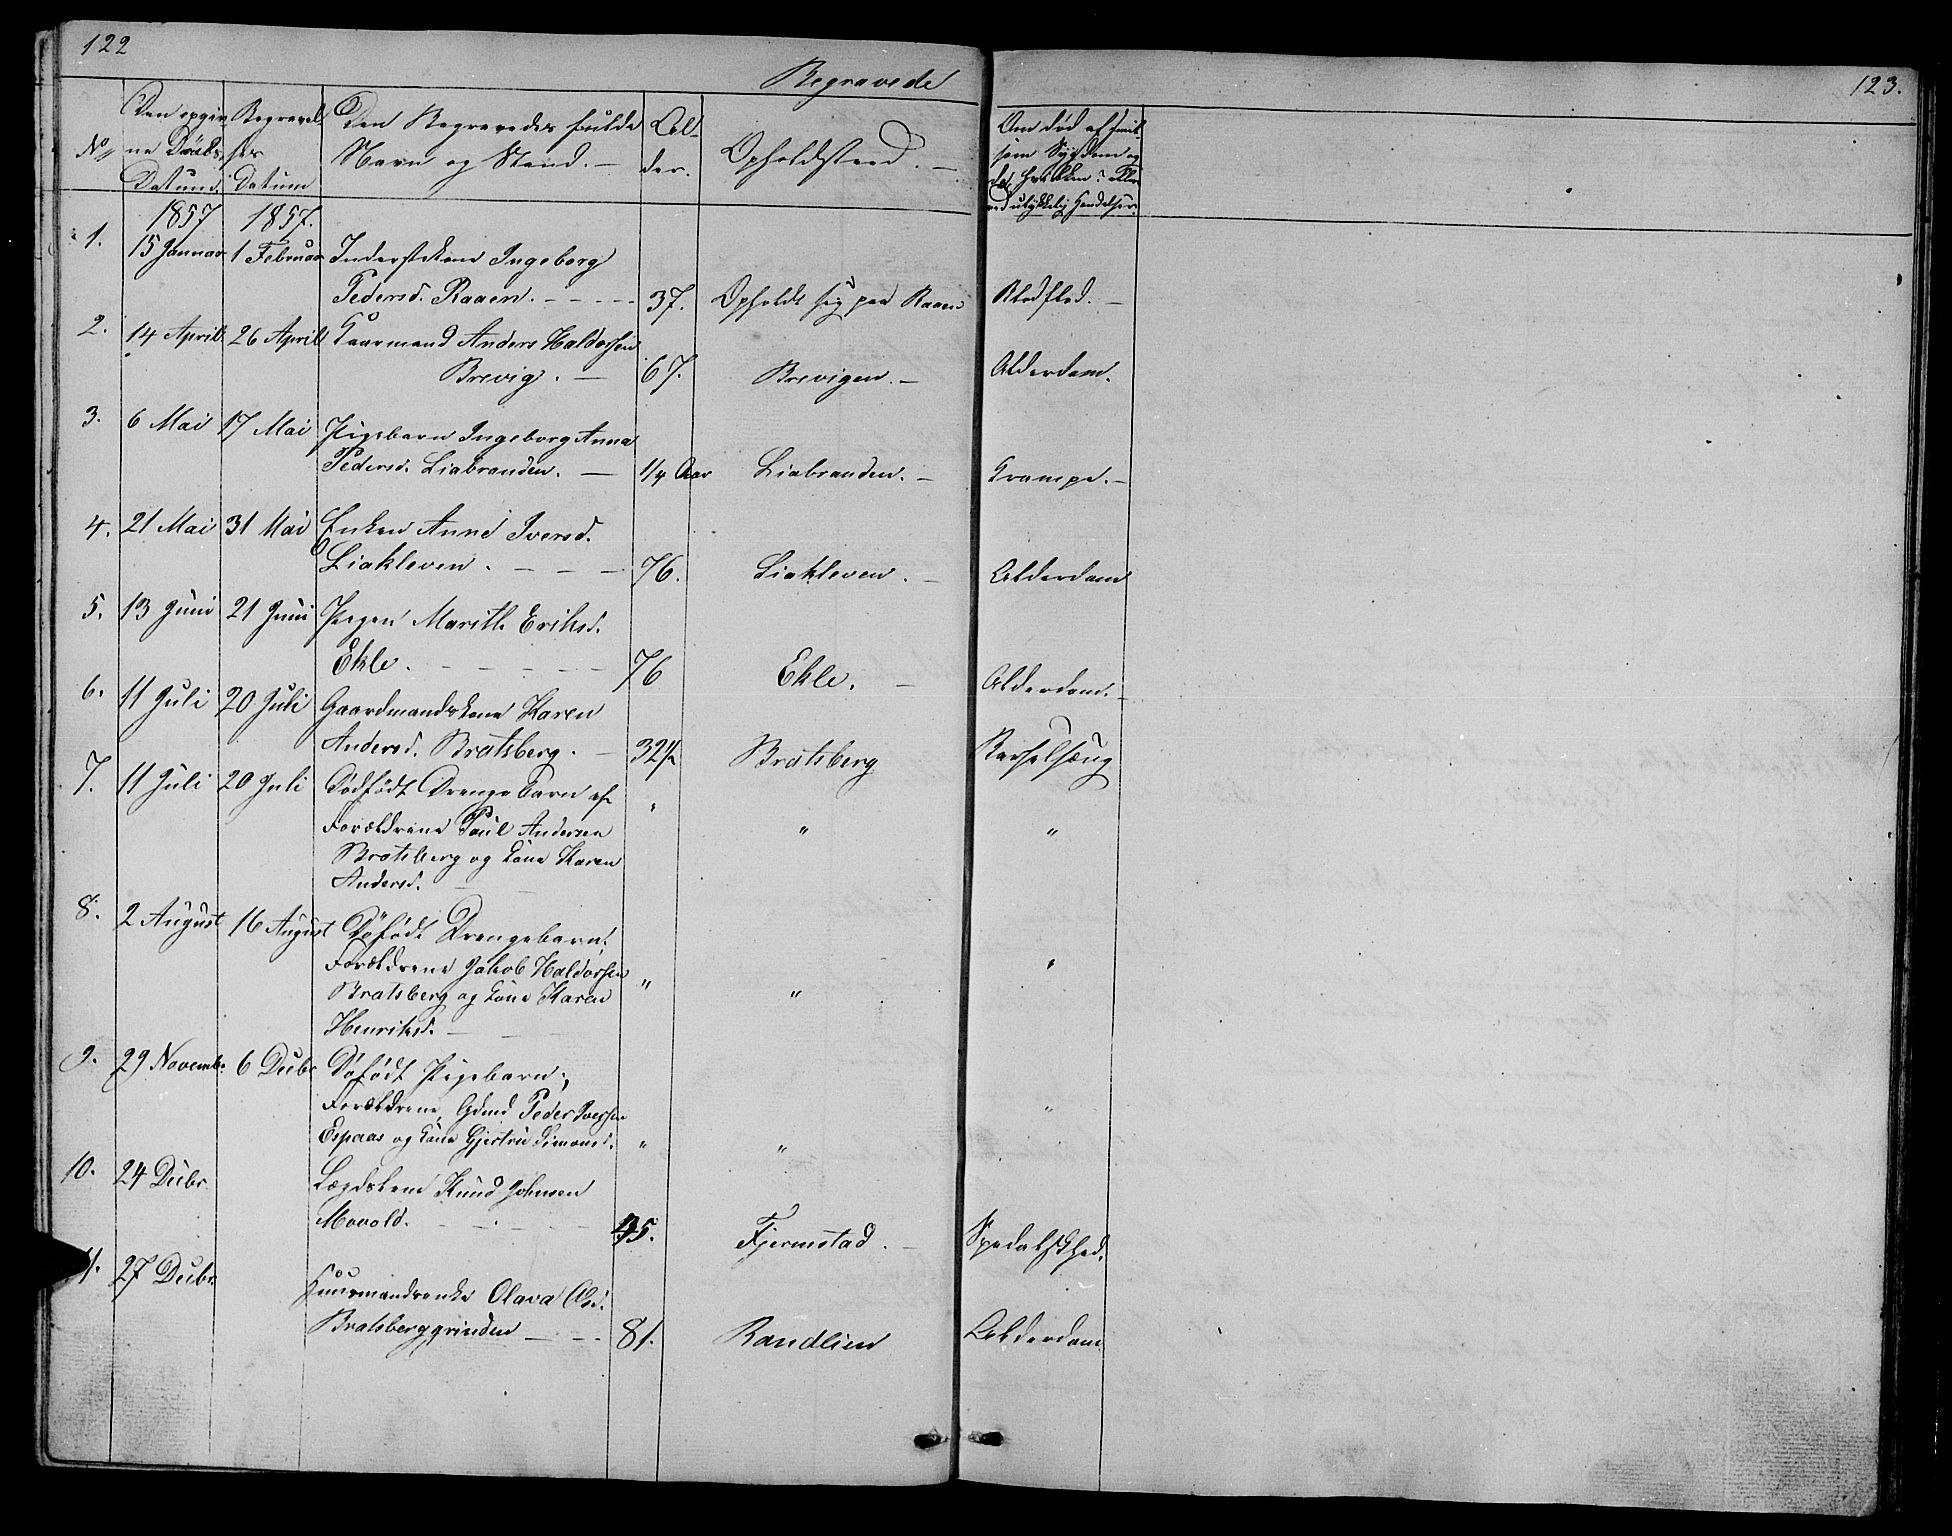 122
Begravede
123.
No
Den opgiv-
ne Døds-
Datum.
Begravel-
ses
Datum
Den Begravedes fulde
Navn og Stand. —
Al-
der.
Opholdssted. —
Om død af smit-
som Sygdom og
da hvilken? eller
ved ulykkelig Hendelse.
1857 1857.
1. 15 Januar 1 Februar Inderstekone Ingeborg
Pedersd. Raaen. 37. Opholdt sig paa Raaen Blodflod. —
2. 14 April 26 April Kaarmand Anders Haldorsen
Brevig. — 67. Brevigen. — Alderdom.
3. 6 Mai 17 Mai Pigebarn Ingeborg Anna
Pedersd. Liabranden. — 1/4 Aar Liabranden. — Krampe. —
4. 21 Mai 31 Mai Enken Anne Iversd.
Liakleven. 76. Liakleven. — Alderdom
5. 13 Juni 21 Juni Pigen Marith Eriksd.
Ekle. 76 Ekle. — Alderdom. —
6. 11 Juli 20 Juli Gaardmandskone Karen
Andersd. Bratsberg. — 32 1/2 Bratsberg Barselsæng
7. 11 Juli 20 Juli Dødfødt Drengebarn af
Forældrene Paul Andersen " "
Bratsberg og Kone Karen
Andersd. —
8. 2 August 16 August Døfødt Drengebarn;
Forældrene Jakob Haldorsen "
Bratsberg og Kone Karen " "
Henriksd. —
9. 29 Novembr. 6 Decbr Døfødt Pigebarn;
Forældrene Gdmd Peder Iversen "
Espaas og Kone Gjertru Simonsd. " "
10. 24 Decbr Lægdslem Knud Johnsen
Movold. 45. Fjermstad. — Spedalskhed.
11. 27 Decbr.
Huusmandsenke Olava Olsd.
Bratsberggrinden 81. Randlien Alderdom